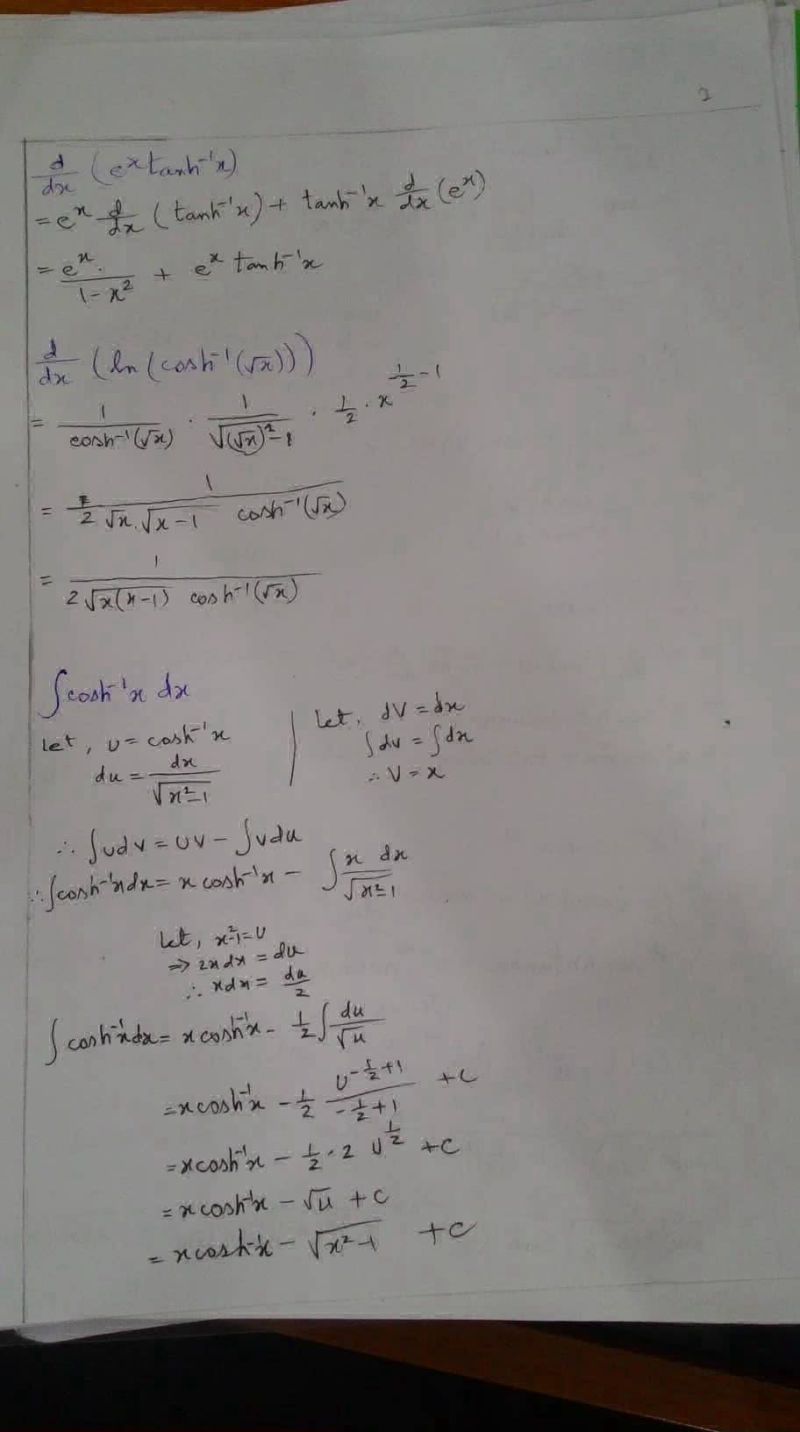 2
d/dx (eˣ tanh⁻¹x)
= eˣ d/dx (tanh⁻¹x) + tanh⁻¹x d/dx (eˣ)
= eˣ/(1-x²) + eˣ tanh⁻¹x
d/dx (ln (cosh⁻¹(√x)))
= 1/(cosh⁻¹(√x)) · 1/√((√x)²-1) · 1/2 · x^(1/2 - 1)
= 1/(2 √x.√(x-1) cosh⁻¹(√x))
= 1/(2√(x(x-1)) cosh⁻¹(√x))
∫cosh⁻¹x dx
Let, u = cosh⁻¹x
du = dx/√(x²-1)
Let, dv = dx
∫dv = ∫dx
∴ v = x
∴ ∫udv = uv - ∫vdu
∴ ∫cosh⁻¹xdx = x cosh⁻¹x - ∫ x dx/√(x²-1)
Let, x²-1=u
⇒ 2xdx = du
∴ xdx = du/2
∫ cosh⁻¹xdx = x cosh⁻¹x - 1/2 ∫ du/√u
= x cosh⁻¹x - 1/2 u^(-1/2+1)/(-1/2+1) + c
= x cosh⁻¹x - 1/2 · 2 u^(1/2) + c
= x cosh⁻¹x - √u + c
= x cosh⁻¹x - √(x²-1) + c